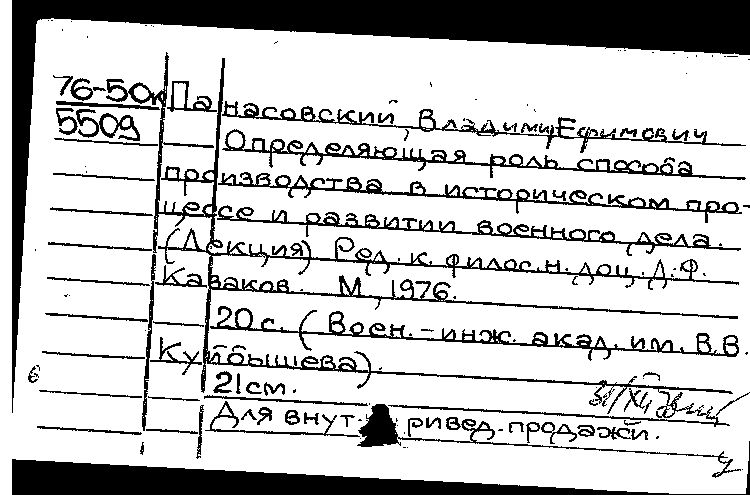 76-50к Панасовский, Владимир Ефимович
5509 Определяющая роль способа
производства в историческом про-
цессе и развитии военного дела.
(Лекция) Ред. к. филос. н. доц. Д. Ф.
Казаков. М, 1976.
20 с. (Воен.-инж. акад. им. В.В.
Куйбышева).
6
21 см.
31/XII
Для внут ривед. продажи.